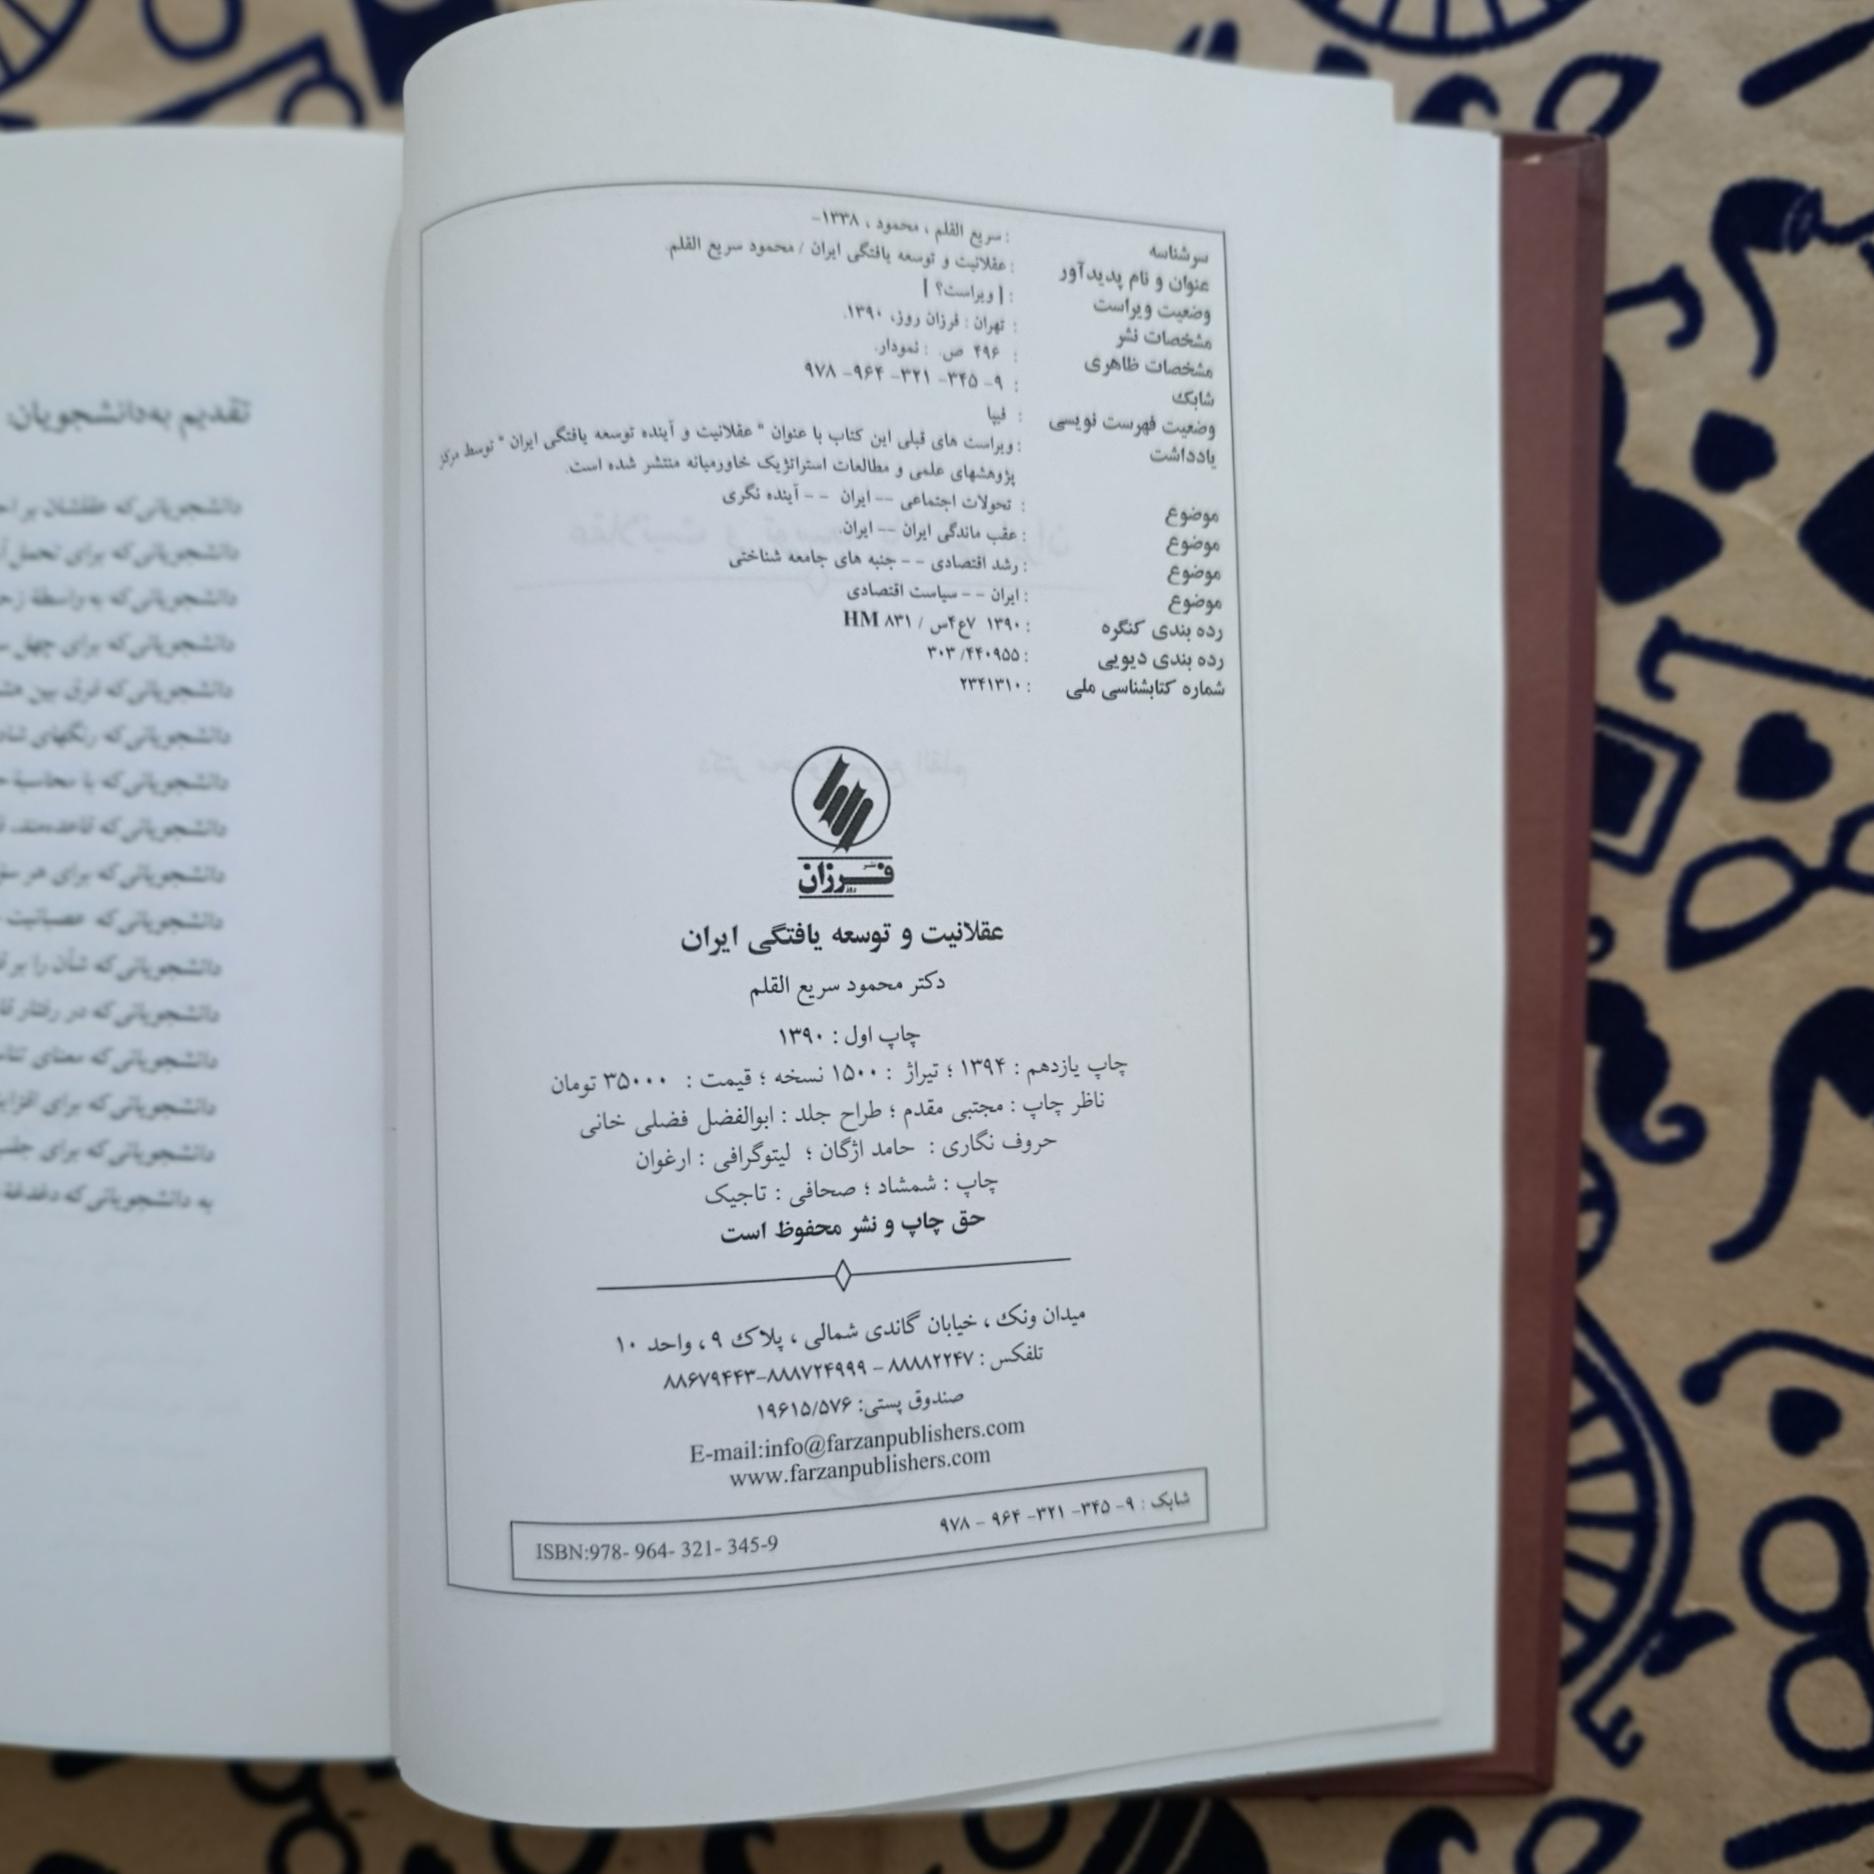 سرشناسه : سریع القلم ، محمود ، ۱۳۳۸-
عنوان و نام پدیدآور : عقلانیت و توسعه یافتگی ایران / محمود سریع القلم.
وضعیت ویراست : [ ویراست؟ ]
مشخصات نشر : تهران : فرزان روز، ۱۳۹۰.
مشخصات ظاهری : ۴۹۶ ص. : نمودار.
شابک : ۹۷۸ -۹۶۴ -۳۲۱ -۳۴۵ -۹
وضعیت فهرست نویسی : فیپا
یادداشت : ویراست های قبلی این کتاب با عنوان " عقلانیت و آینده توسعه یافتگی ایران " توسط مرکز
پژوهشهای علمی و مطالعات استراتژیک خاورمیانه منتشر شده است.
موضوع : تحولات اجتماعی -- ایران -- آینده نگری
موضوع : عقب ماندگی ایران -- ایران.
موضوع : رشد اقتصادی -- جنبه های جامعه شناختی
موضوع : ایران -- سیاست اقتصادی
رده بندی کنگره : ۱۳۹۰ ۷ع۴س / HM ۸۳۱
رده بندی دیویی : ۳۰۳/۴۴۰۹۵۵
شماره کتابشناسی ملی : ۲۳۴۱۳۱۰
نشر فرزان روز
عقلانیت و توسعه یافتگی ایران
دکتر محمود سریع القلم
چاپ اول : ۱۳۹۰
چاپ یازدهم : ۱۳۹۴ ؛ تیراژ : ۱۵۰۰ نسخه ؛ قیمت : ۳۵۰۰۰ تومان
ناظر چاپ : مجتبی مقدم ؛ طراح جلد : ابوالفضل فضلی خانی
حروف نگاری : حامد اژگان ؛ لیتوگرافی : ارغوان
چاپ : شمشاد ؛ صحافی : تاجیک
حق چاپ و نشر محفوظ است
میدان ونک ، خیابان گاندی شمالی ، پلاک ۹ ، واحد ۱۰
تلفکس : ۸۸۸۸۲۲۴۷ - ۸۸۸۷۲۴۹۹۹-۸۸۶۷۹۴۴۳
صندوق پستی: ۱۹۶۱۵/۵۷۶
E-mail:info@farzanpublishers.com
www.farzanpublishers.com
شابک : ۹۷۸ - ۹۶۴ -۳۲۱ -۳۴۵ -۹
ISBN:978- 964- 321- 345-9
تقدیم به دانشجویان:
دانشجویانی که
دانشجویانی که برای تحمل
دانشجویانی که به واسطهٔ
دانشجویانی که برای چهل
دانشجویانی که فرق بین
دانشجویانی که رنگهای
دانشجویانی که با محاسبهٔ
دانشجویانی که قاعده‌مند،
دانشجویانی که برای هر
دانشجویانی که عصبانیت
دانشجویانی که شأن را بر
دانشجویانی که در رفتار
دانشجویانی که معنای
دانشجویانی که برای
دانشجویانی که برای
به دانشجویانی که دغدغهٔ